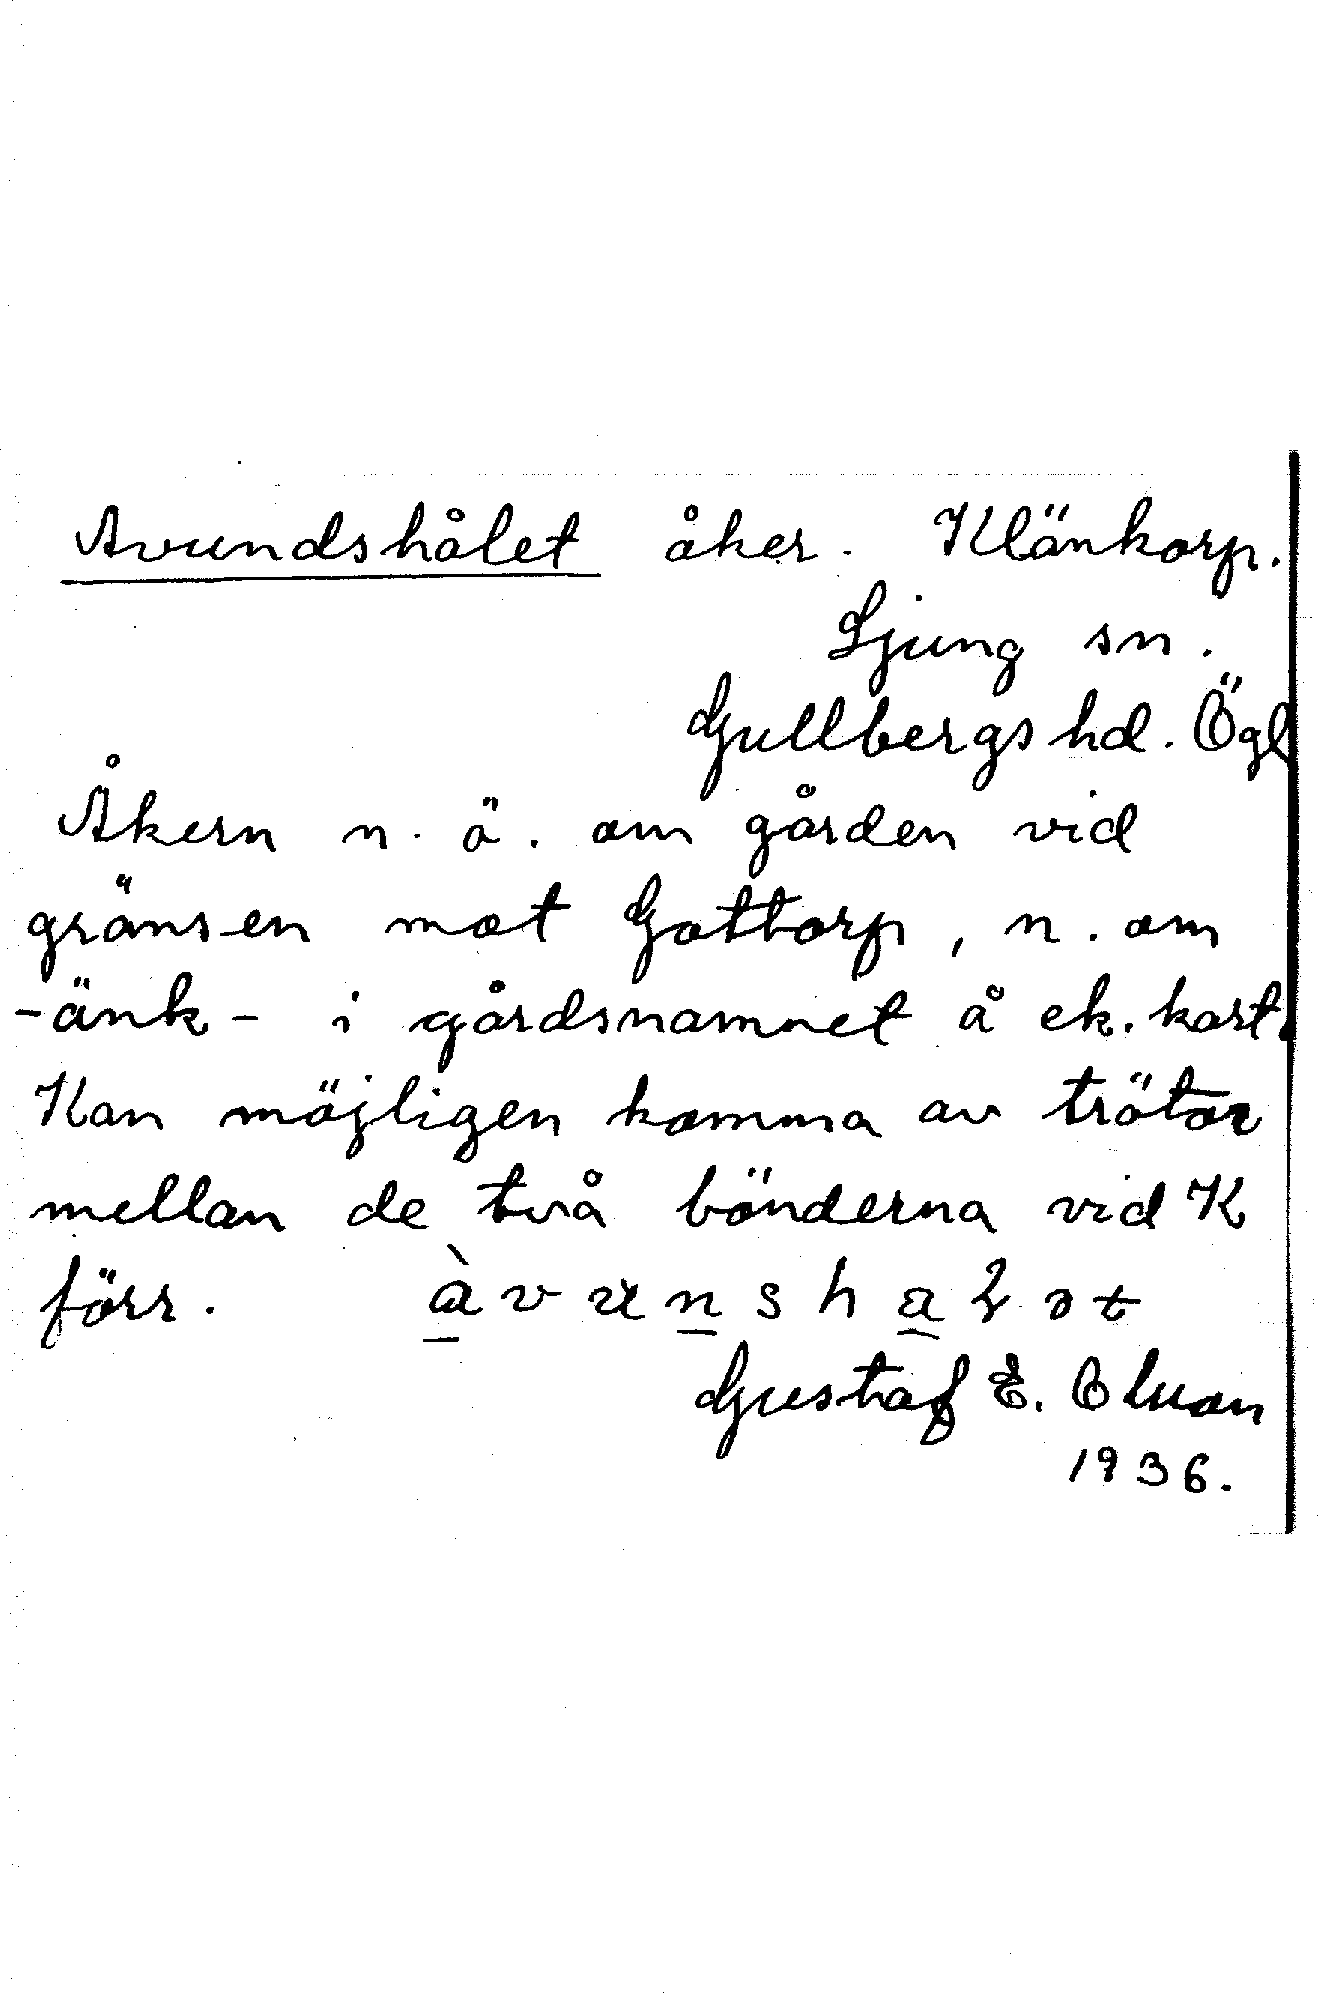 Avundshålet åker. Klänkorp.
Ljung sn.
Gullbergs hd. Ögl
Åkern n. ö. om gården vid
gränsen mot Gottorp, n. om
-änk- i gårdsnamnet å ek. kart.
Kan möjligen komma av trötor
mellan de två bönderna vid K
förr. àvunshalət
Gustaf E.
1936.